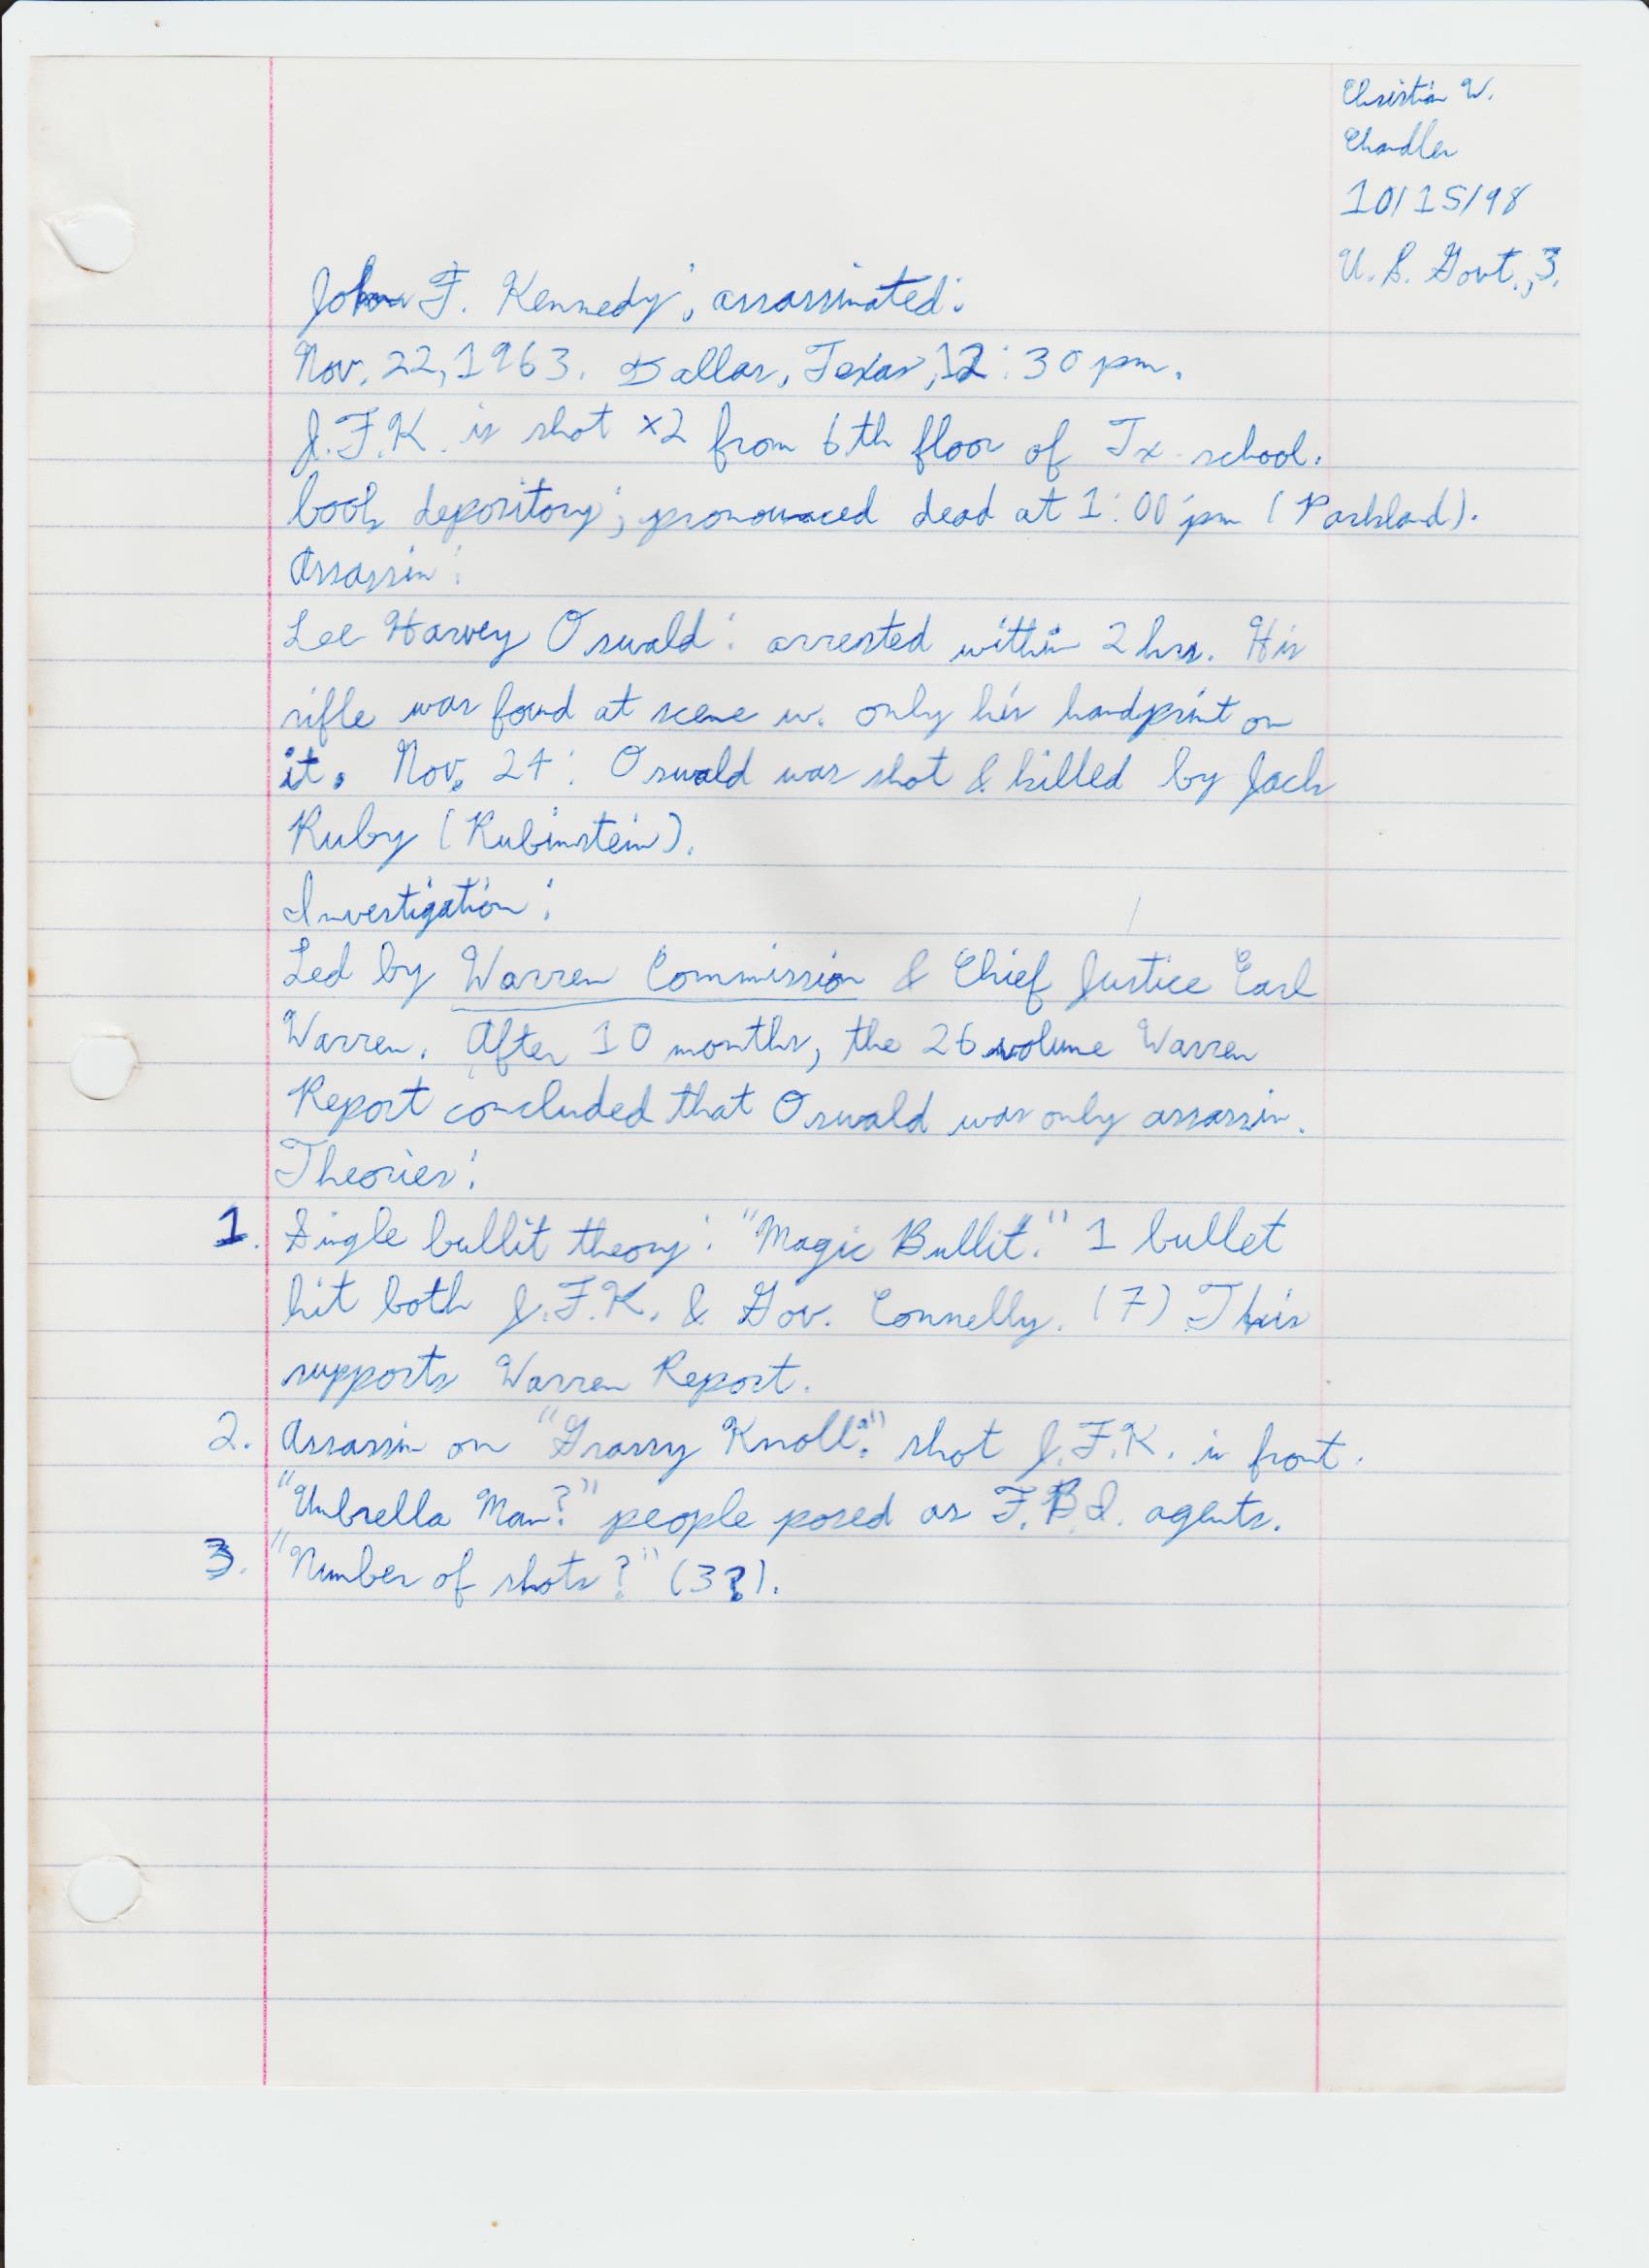 Christian W.
Chandler
10/15/98
U. S. Govt., 3.
John F. Kennedy; assassinated:
Nov. 22, 1963. Dallas, Texas, 12:30 pm.
J.F.K. is shot x2 from 6th floor of Tx school.
book depository; pronounced dead at 1:00 pm (Parkland).
Assassin:
Lee Harvey Oswald: arrested within 2 hrs. His
rifle was found at scene w. only his handprint on
it. Nov. 24: Oswald was shot & killed by Jack
Ruby (Rubinstein).
Investigation:
Led by Warren Commission & Chief Justice Earl
Warren. After 10 months, the 26 volume Warren
Report concluded that Oswald was only assassin.
Theories:
1. Single bullit theory: "Magic Bullit." 1 bullet
hit both J.F.K. & Gov. Connelly. (7) This
supports Warren Report.
2. Assassin on "Grassy Knoll." shot J.F.K. in front.
"Umbrella Man?" people posed as F.B.I. agents.
3. "Number of shots?" (3?).